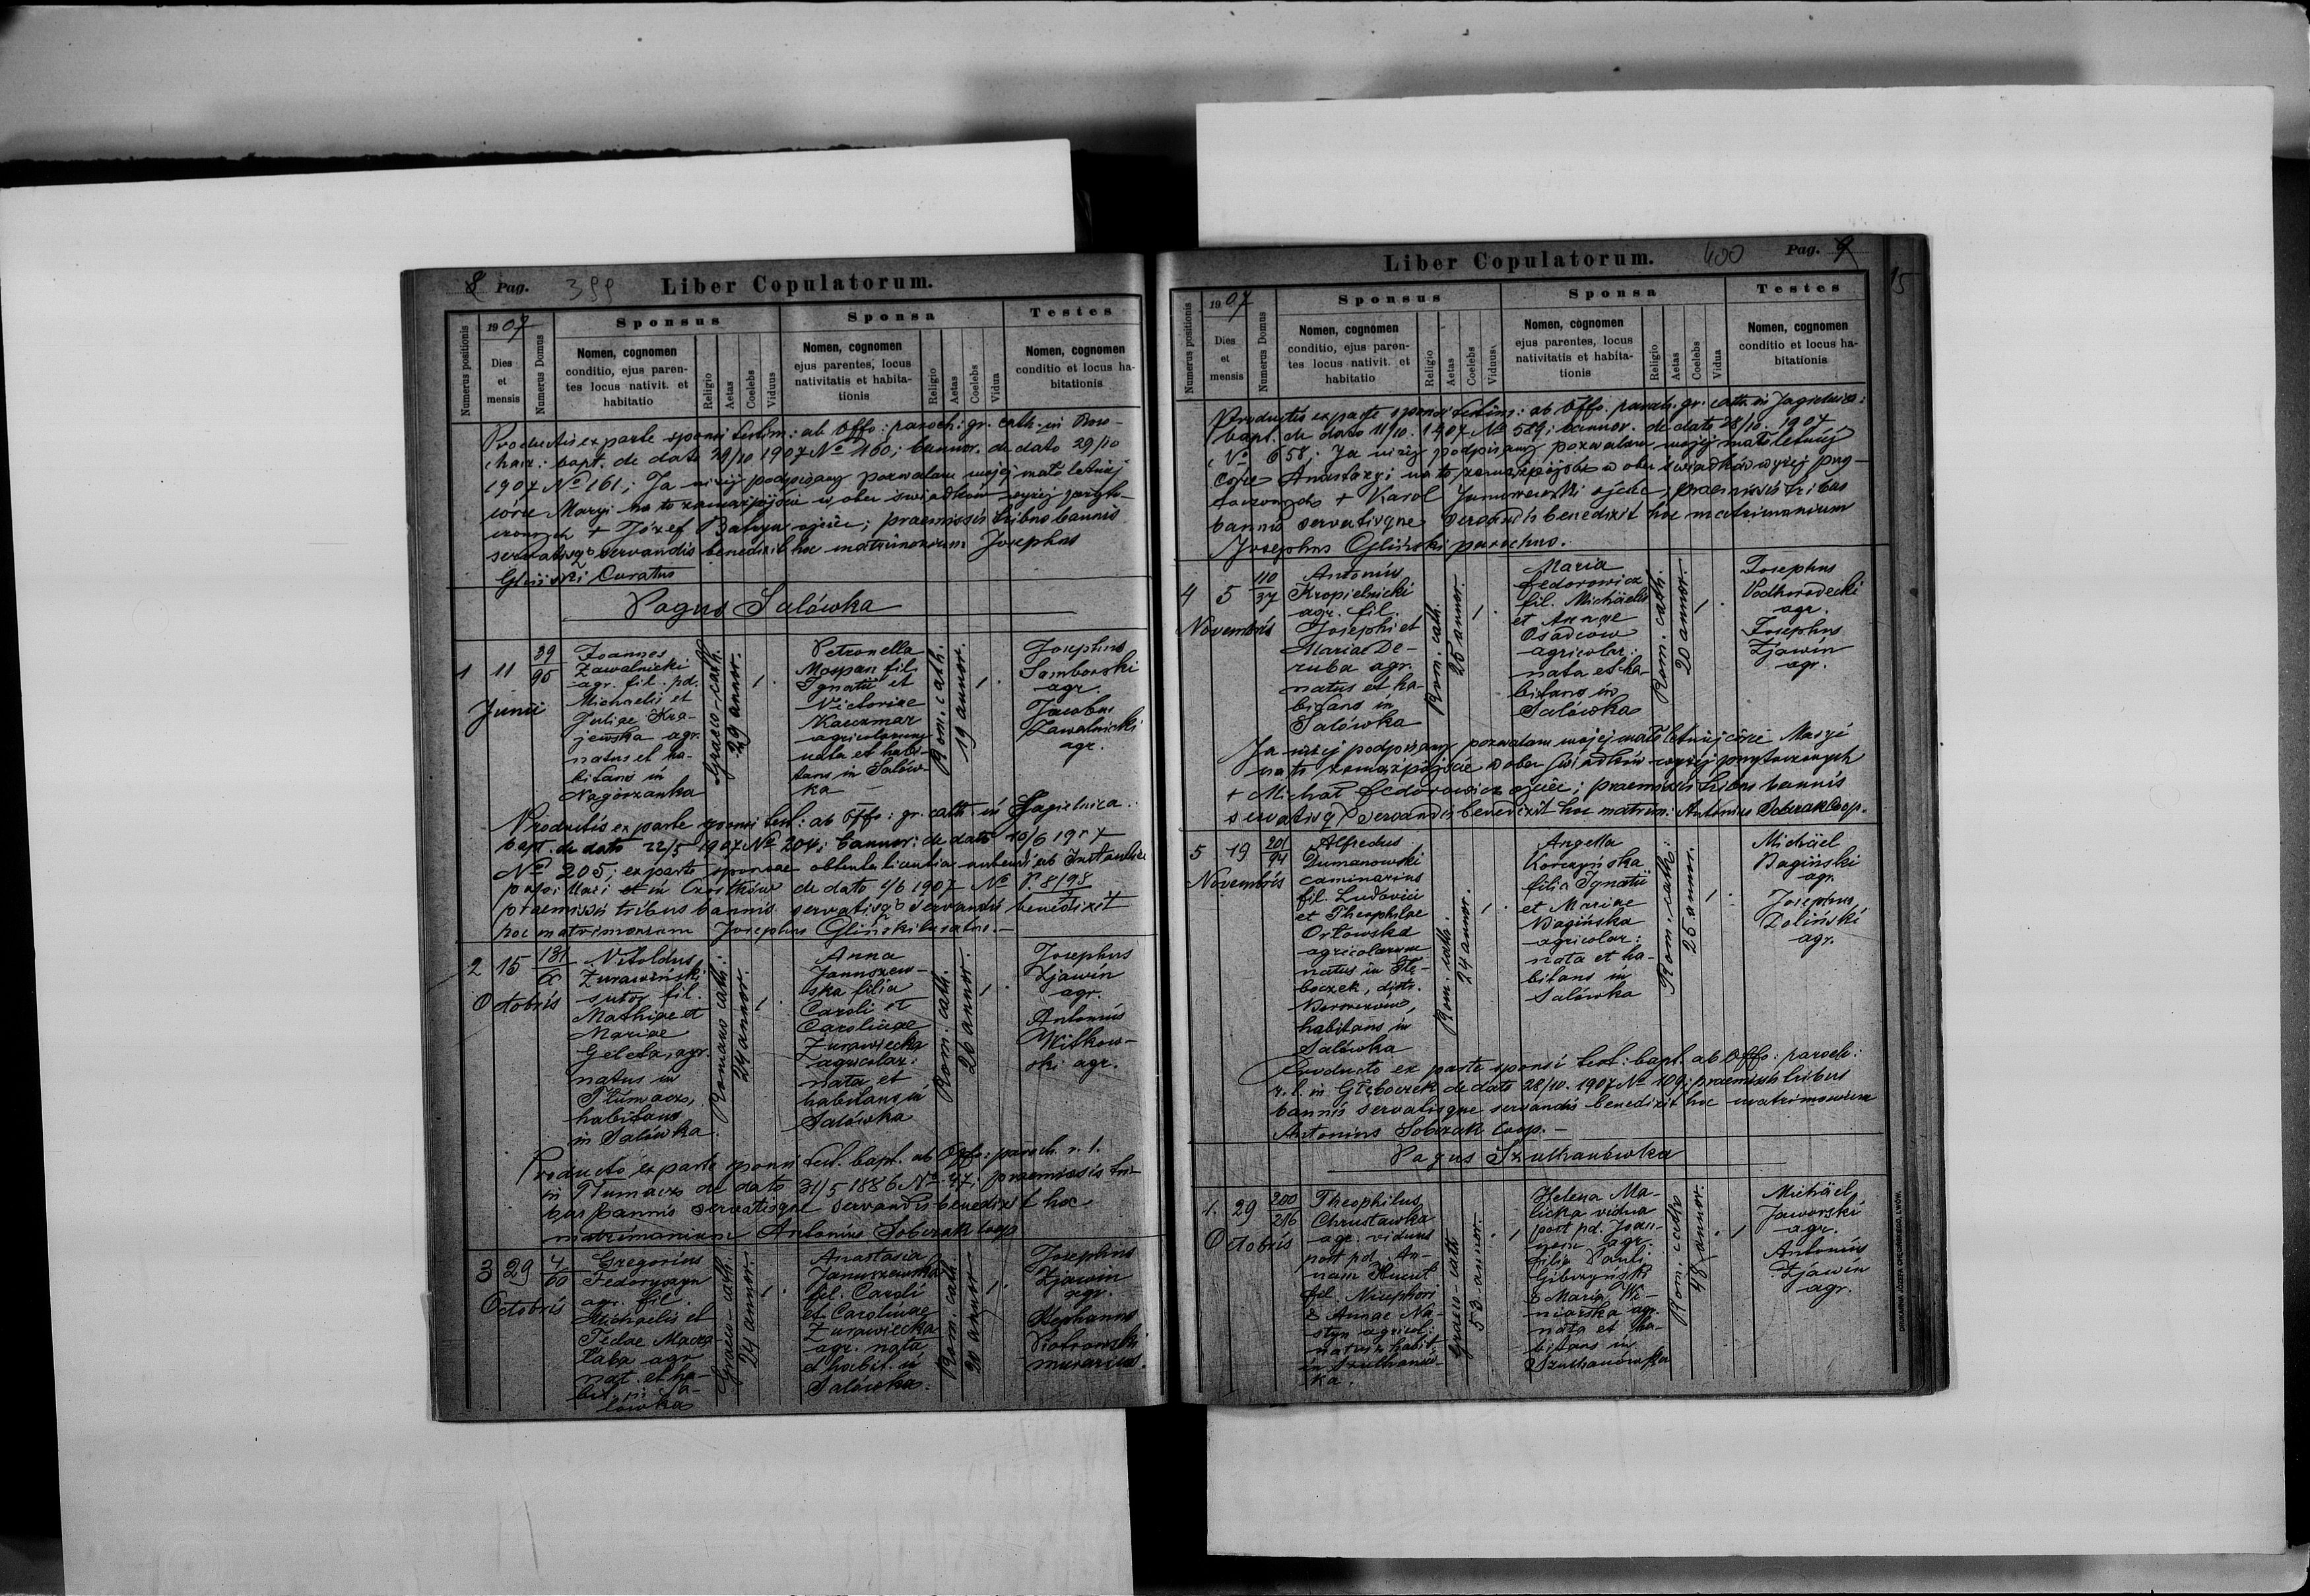 8 Pag. 399 Liber Copulatorum.
Numerus positionis
1907
Dies
et
mensis
Numerus Domus
Sponsus
Nomen, cognomen
conditio, ejus paren-
tes locus nativit. et
habitatio
Religio
Aetas
Coelebs
Viduus
Sponsa
Nomen, cognomen
ejus parentes, locus
nativitatis et habita-
tionis
Religio
Aetas
Coelebs
Vidua
Testes
Nomen, cognomen
conditio et locus ha-
bitationis
Productis ex parte sponsi testim: ab Offo: paroch: gr. cath. in
bapt. de dato 29/10 1907 No 160; bannor. de dato 29/10
1907 No 161; Ja niżej podpisany pozwalam mojej małoletniej
córce Maryi na to zamążpójście w obec świadków wyżej przyto-
czonych + Józef ojciec; praemissis tribus bannis
servatisq servandis benedixit hoc matrimonium Josephus
Gliński Curatus
Pagus Salówka
1 11
Junii
39
95
Joannes
Zawalnicki
agr. fil. pd.
Michaelis et
Juliae Kra-
jewska agr.
natus et ha-
bitans in
Nagórzanka
Graeco-cath.
29 annor.
Petronella
fil.
Ignatii et
Victoriae
Kaczmar
agricolarum
nata et habi-
tans in Salów-
ka
Rom. cath.
19 annor.
Josephus
Samborski
agr.
Jacobus
Zawalnicki
agr.
Productis ex parte sponsi test: ab Offo: gr. cath. in Jagielnica:
bapt. de dato 22/5 1907 No 204; bannor: de dato 10/6 1907
No 205; ex parte sponsae obtenta licentia
in Czortków de dato 1907 No
praemissis tribus bannis servatisq servandis benedixit
hoc matrimonium Josephus Gliński Curatus.
2 15
Octobris
131
Vitoldus
Żurawiński
sutor fil.
Mathiae et
Mariae
Geleta, agr.
natus in
Tłumacz,
habitans
in Salówka.
Romano cath:
24 annor.
Anna
Januszew-
ska filia
Caroli et
Carolinae
Żurawiecka
agricolar:
nata et
habitans in
Salówka
Rom: cath.
26 annor.
Josephus
Zjawin
agr.
Antonius
Witkow-
ski agr.
Producto ex parte sponsi test. bapt. ab Offo: paroch. r. l.
in Tłumacz de dato 31/5 1886 No 47; praemissis tri-
bus bannis servatisque servandis benedixit hoc
matrimonium Antonius Sobczak Coop
3 29
Octobris
4
60
Gregorius
Fedoryszyn
agr. fil.
Michaelis et
Teclae
agr.
nat. et ha-
bit. in Sa-
lówka
Graeco-cath.
24 annor.
Anastasia
Januszewska
fil. Caroli
et Carolinae
Żurawiecka
agr. nata
et habit. in
Salówka.
Rom. cath.
20 annor
Josephus
Zjawin
agr.
Stephanus
Piotrowski
murarius.
Liber Copulatorum. 400 Pag. 9
15
Numerus positionis
1907
Dies
et
mensis
Numerus Domus
Sponsus
Nomen, cognomen
conditio, ejus paren-
tes locus nativit. et
habitatio
Religio
Aetas
Coelebs
Viduus
Sponsa
Nomen, cognomen
ejus parentes, locus
nativitatis et habita-
tionis
Religio
Aetas
Coelebs
Vidua
Testes
Nomen, cognomen
conditio et locus ha-
bitationis
Productis ex parte sponsi testim: ab Offo. paroch. gr. cath. in Jagielnica:
bapt. de dato 11/10. 1907 No 589; bannor. de dato 28/10. 1907
No 658; Ja niżej podpisany pozwalam mojej małoletniej
córce Anastazyi na to zamążpójście w obec świadków wyżej przy-
toczonych + Karol Januszewski ojciec; praemissis tribus
bannis servatisque servandis benedixit hoc matrimonium
Josephus Gliński parochus.
4 5
Novembris
110
37
Antonius
Kropielnicki
agr. fil.
Josephi et
Mariae De-
ruba agr.
natus et ha-
bitans in
Salówka
Rom. cath.
25 annor.
Maria
Fedorowicz
fil. Michaelis
et Annae
Osadców
agricolar:
nata et ha-
bitans in
Salówka
Rom. cath.
20 annor.
Josephus
Podhorodecki
agr.
Josephus
Zjawin
agr.
Ja niżej podpisany pozwalam mojej małoletniej córce Maryi
na to zamążpójście w obec świadków wyżej przytoczonych
+ Michał Fedorowicz ojciec; praemissis tribus bannis
servatisq servandis benedixit hoc matrim: Antonius Sobczak Coop.
5 19
Novembris
201
94
Alfredus
Dumanowski
caminarius
fil. Ludovici
et Theophilae
Orłowska
agricolarum
natus in Głę-
boczek, distr.
Borszczów,
habitans in
Salówka
Rom. cath.
24 annor.
Angella
Korczyńska
filia Ignatii
et Mariae
Bagińska
agricolar:
nata et ha-
bitans in
Salówka
Rom. cath:
25 annor.
Michäel
Bagiński
agr.
Josephus
Doliński
agr.
Producto ex parte sponsi test: bapt. ab Offo: paroch:
r. l. in Głęboczek de dato 28/10. 1907 No 109; praemissis tribus
bannis servatisque servandis benedixit hoc matrimonium
Antonius Sobczak Coop.
Pagus Szulhanówka
1. 29
Octobris
200
216
Theophilus
Chrustawka
agr. viduus
post pd. An-
nam
fil. Nicephori
& Annae Na-
styn agricol:
natus habit.
in Szulhanów-
ka.
Graeco-cath
53 annor.
Helena Ma-
licka vidua
post pd. Joan-
nem agr.
filia Pauli
Gibczyński
& Maria Wi-
niarska agr.
nata et ha-
bitans in
Szulhanówka
Rom. cath
48 annor.
Michäel
Jaworski
agr.
Antonius
Zjawin
agr.
DRUKARNIA JÓZEFA CHĘCIŃSKIEGO, LWÓW.